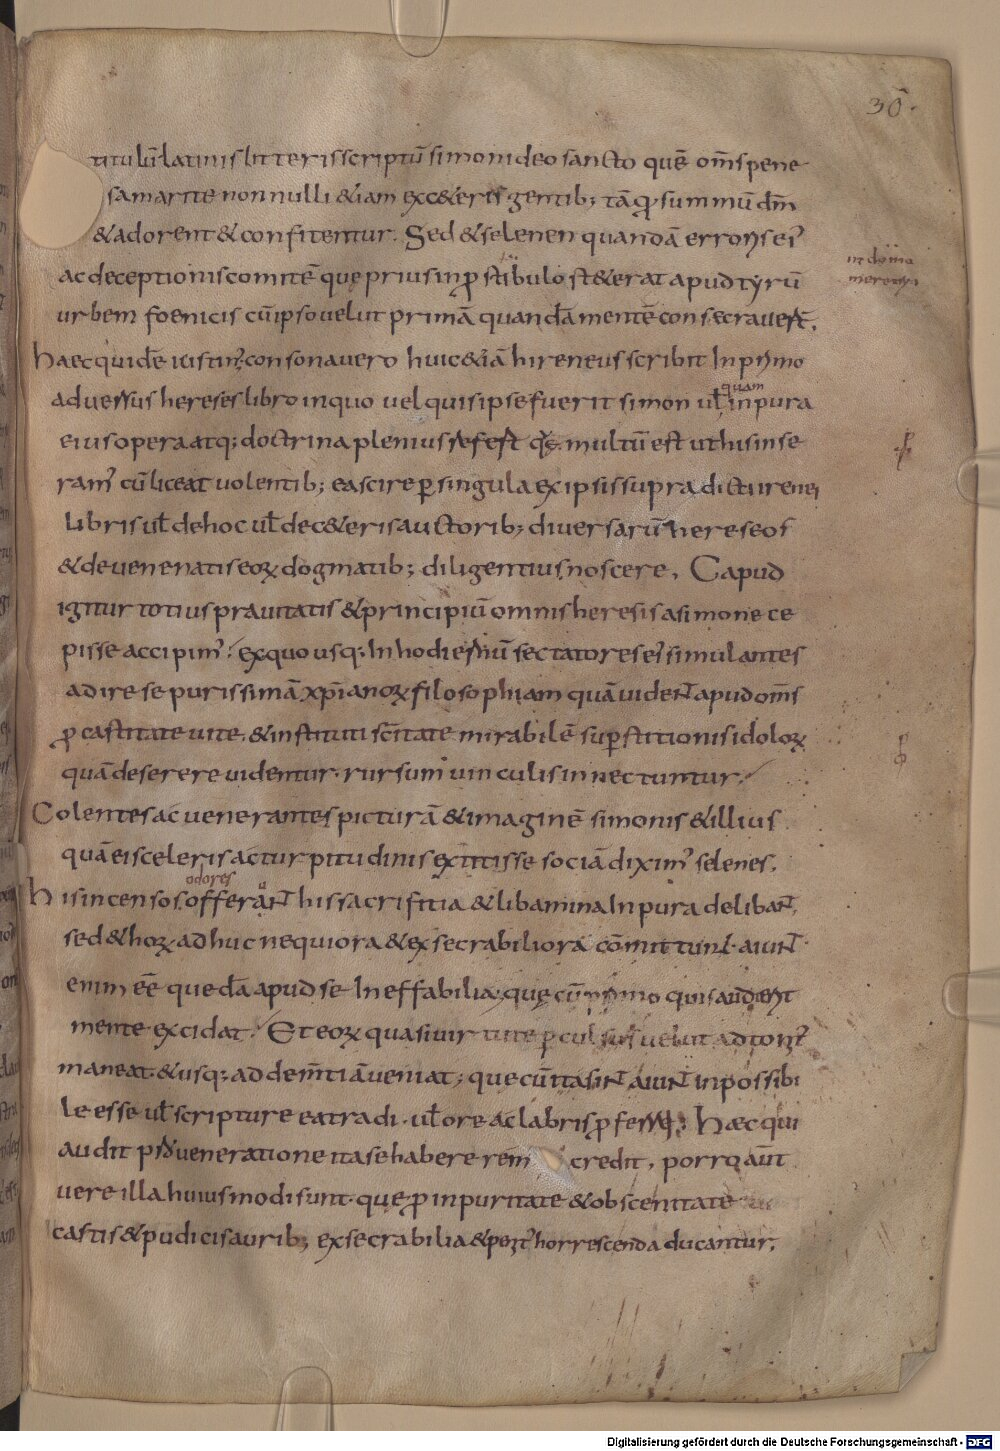 30.
titulū latinis litteris scriptū simoni deo sancto quē om̄s pene
samarite non nulli &iam exc&eris gentib; tāq̧ summū dm̄
& adorent & confitentur. Sed & selenen quandā erroris eiꝰ
ac deceptionis comitē quę prius in ꝓstibulo st&erat apud tyrū
in domo
meretricū
urbem foenicis cū ipso velut primā quandā mentē consecravert̄.
haec quidē iustinꝰ. consona vero huic &iā hireneus scribit In primo
adversus hereses libro in quo vel quis ipse fuerit simon vel̄ quam inpura
eius opera atq; doctrina plenius refert qs̄. multū est ut his inse
ramꝰ cū liceat volentib; ea scire ꝑ singula ex ipsis supra dicti irenei
libris vel̄ de hoc vel̄ de c&eris auctorib; diversarū hereseos
& de venenatis eoꝝ dogmatib; diligentius noscere. Capud
igitur totius pravitatis & principiū omnis heresis a simone ce
pisse accipimꝰ. ex quo usq; In hodiernū sectatores eiꝰ simulantes
adire se purissimā xp̄ianoꝝ filosophiam quā vident̄ apud om̄s
ꝓ castitate vite. & instituti sc̄itate mirabilē supstitionis idoloꝝ
quā deserere videntur. rursum vinculis innectuntur.
Colentes ac venerantes picturā & imaginē simonis & illius
quā ei sceleris ac turpitudinis extitisse sociā diximꝰ selenes.
odores
his incensos offerant his sacrifitia & libamina In pura delibant,
sed & hoꝝ adhuc nequiora & exsecrabiliora cōmittunt. aiunt
enim eē quedā apud se Ineffabilia, quę cū primo quis audient
mente excidat. Et eoꝝ quasi virtute ꝑculsus velut adtonitꝰ
maneat. & usq; ad dem̄tiā veniat; que cū ita sint aiunt inpossibi
le esse vel̄ scripture ea tradi. vel̄ ore ac labris ꝓferri; Haec qui
audit pro veneratione ita se habere rem credit, porro aūt
vere illa huiusmodi sunt. que ꝓ inpuritate & obscenitate
castis & pudicis aurib; exsecrabilia & penitꝰ horrescenda ducantur.
Digitalisierung gefördert durch die Deutsche Forschungsgemeinschaft - DFG